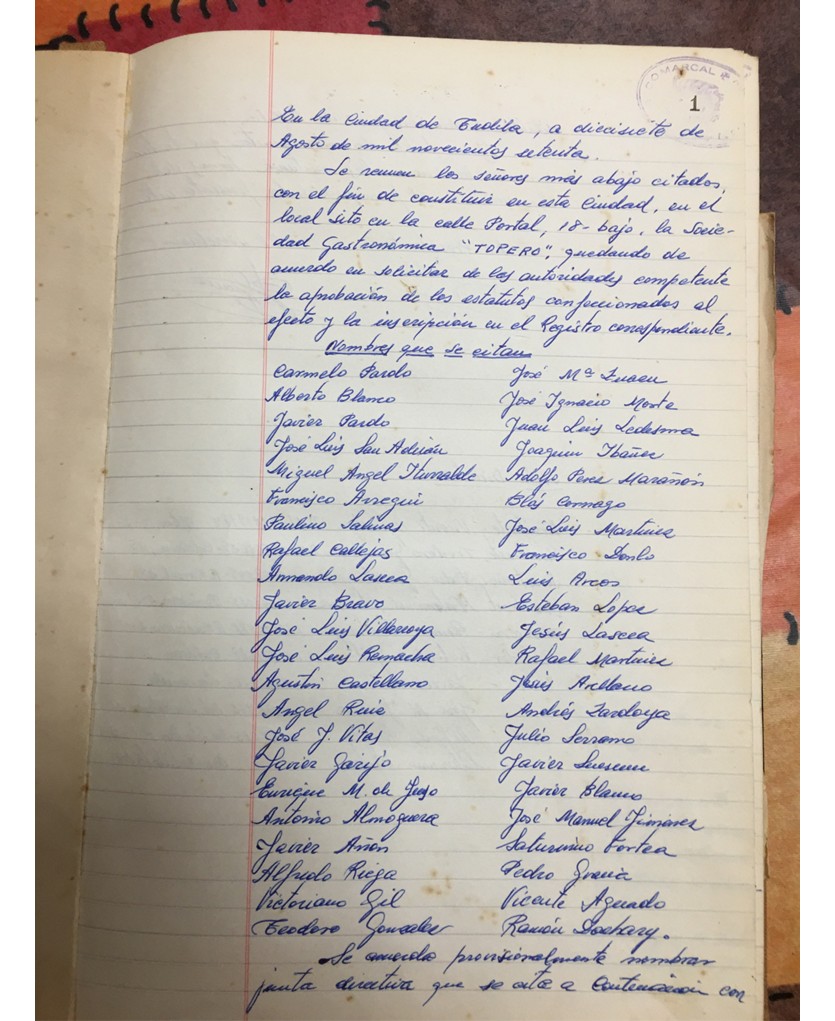 COMARCAL
1
En la Ciudad de Tudela, a diecisiete de
Agosto de mil novecientos setenta.
Se reunen los señores más abajo citados,
con el fin de constituir en esta Ciudad, en el
local sito en la calle Portal, 18-bajo, la Socie-
dad Gastronómica "TOPERO", quedando de
acuerdo en solicitar de las autoridades competente
la aprobación de los estatutos confeccionados al
efecto y la inscripción en el Registro correspondiente.
Nombres que se citan
Carmelo Pardo José Mª
Alberto Blanco José Ignacio Monte
Javier Pardo Juan Luis Ledesma
José Luis San Adrián Joaquin Ibáñez
Miguel Angel Iturralde Adolfo Perez Marañón
Francisco Arregui Blás Cornago
Paulino Salinas José Luis Martinez
Rafael Callejas Francisco
Armando Lasaea Luis Arcos
Javier Bravo Esteban Lopez
José Luis Villarroya Jesús
José Luis Remacha Rafael Martinez
Agustín Castellano Jesús Arellano
Angel Ruiz Andrés Zardoya
José J. Vitas Julio Serrano
Javier Garijo Javier
Enrique M. de Javier Blanco
Antonio Almoguera José Manuel Jiménez
Javier Añón Saturnino Fortea
Alfredo Riega Pedro Gracia
Victoriano Gil Vicente Aguado
Teodoro Gonzalez Ramón Dochary.
Se acuerda provisionalmente nombrar
junta directiva que se cita a Contenuación con